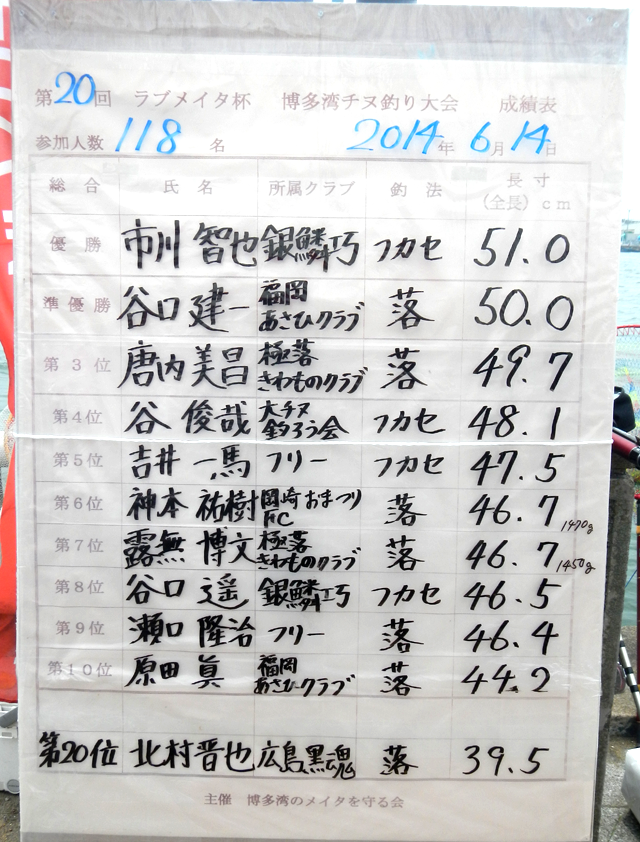 第20回 ラブメイタ杯 博多湾チヌ釣り大会 成績表
参加人数 118 名 2014年 6月 14日
総合 氏名 所属クラブ 釣法 長寸(全長)cm
優勝 市川 智也 銀鱗巧 フカセ 51.0
準優勝 谷口 建一 福岡あさひクラブ 落 50.0
第3位 唐内 美昌 極落きわものクラブ 落 49.7
第4位 谷 俊哉 大チヌ釣ろう会 フカセ 48.1
第5位 吉井 一馬 フリー フカセ 47.5
第6位 神本 祐樹 岡崎おまつりFC 落 46.7 1470g
第7位 露無 博文 極落きわものクラブ 落 46.7 1450g
第8位 谷口 遥 銀鱗巧 フカセ 46.5
第9位 瀬口 隆治 フリー 落 46.4
第10位 原田 眞 福岡あさひクラブ 落 44.2
第20位 北村晋也 広島黒魂 落 39.5
主催 博多湾のメイタを守る会